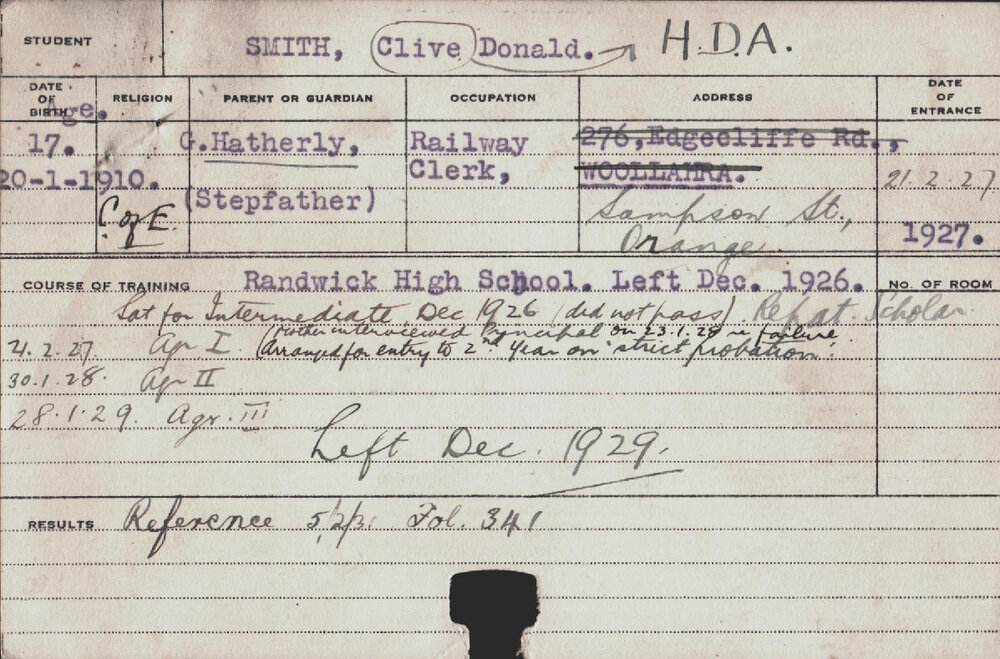 STUDENT SMITH, Clive Donald. → H.D.A.
DATE OF BIRTH RELIGION PARENT OR GUARDIAN OCCUPATION ADDRESS DATE OF ENTRANCE
Age.
17. G.Hatherly, Railway 276,Edgecliffe Rd.,
Clerk, WOOLLAHRA.
20-1-1910. 21.2.27
(Stepfather) Sampson St.,
C of E. Orange. 1927.
COURSE OF TRAINING Randwick High School. Left Dec. 1926. No. OF ROOM
Sat for Intermediate Dec 1926 (did not pass) Rehat. Scholar
(Mother interviewed Principal on 23.1.28 re failure.
21.2.27. Agr I. (Arranged for entry to 2nd Year on "strict probation".
30.1.28. Agr II
28.1.29. Agr. III
Left Dec. 1929.
RESULTS Reference 5/2/31 Fol. 341